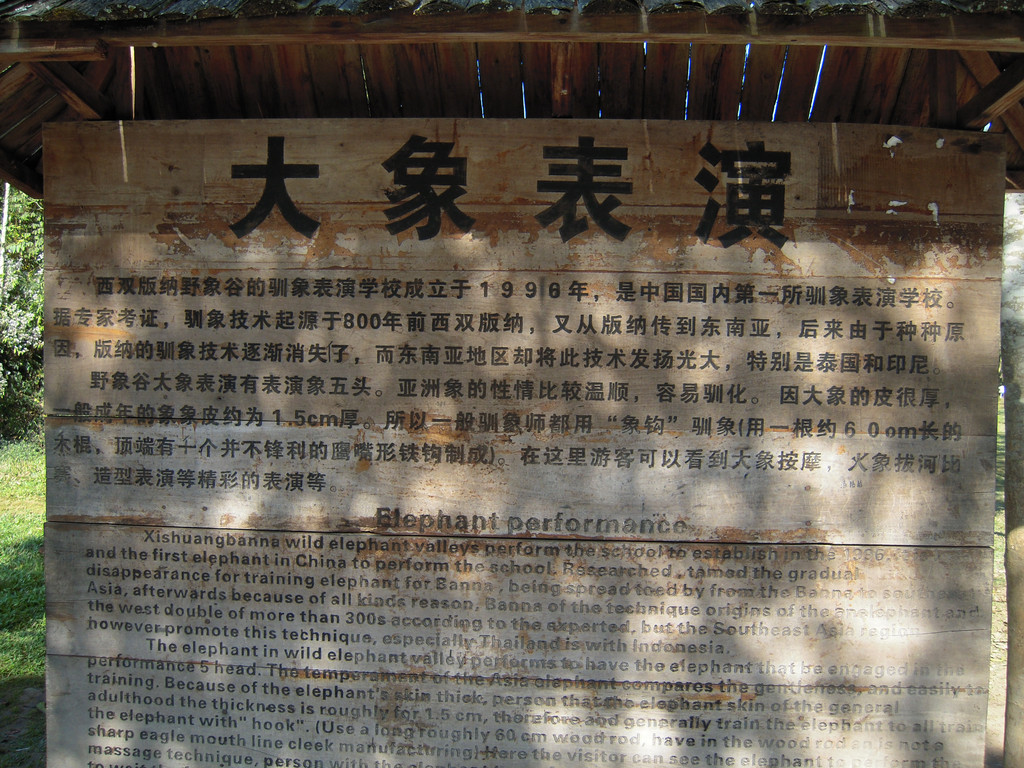 大象表演
西双版纳野象谷的驯象表演学校成立于1996年，是中国国内第一所驯象表演学校。
据专家考证，驯象技术起源于800年前西双版纳，又从版纳传到东南亚，后来由于种种原
因，版纳的驯象技术逐渐消失了，而东南亚地区却将此技术发扬光大，特别是泰国和印尼。
野象谷大象表演有表演象五头。亚洲象的性情比较温顺，容易驯化。因大象的皮很厚，
一般成年的象象皮约为1.5cm厚。所以一般驯象师都用“象钩”驯象(用一根约60cm长的
木棍，顶端有一个并不锋利的鹰嘴形铁钩制成)。在这里游客可以看到大象按摩，人象拔河比
赛、造型表演等精彩的表演等。
Elephant performance
Xishuangbanna wild elephant valleys perform the school to establish in the 1996
and the first elephant in China to perform the school. Researched, tamed the gradual
disappearance for training elephant for Banna, being spread toed by from the Banna to southeast
Asia, afterwards because of all kinds reason, Banna of the technique origins of the anelephant and
the west double of more than 300s according to the experted, but the Southeast Asia region
however promote this technique, especially Thailand is with Indonesia.
The elephant in wild elephant valley performs to have the elephant that be engaged in the
performance 5 head. The temperament of the Asia elephant compares the gentleness, and easily to
training. Because of the elephant's skin thick, person that the elephant skin of the general
adulthood the thickness is roughly for 1.5 cm, therefore and generally train the elephant to all train
the elephant with" hook". (Use a long roughly 60 cm wood rod, have in the wood rod an is not a
sharp eagle mouth line cleek manufacturing) Here the visitor can see the elephant to perform the
massage technique, person with the elephant